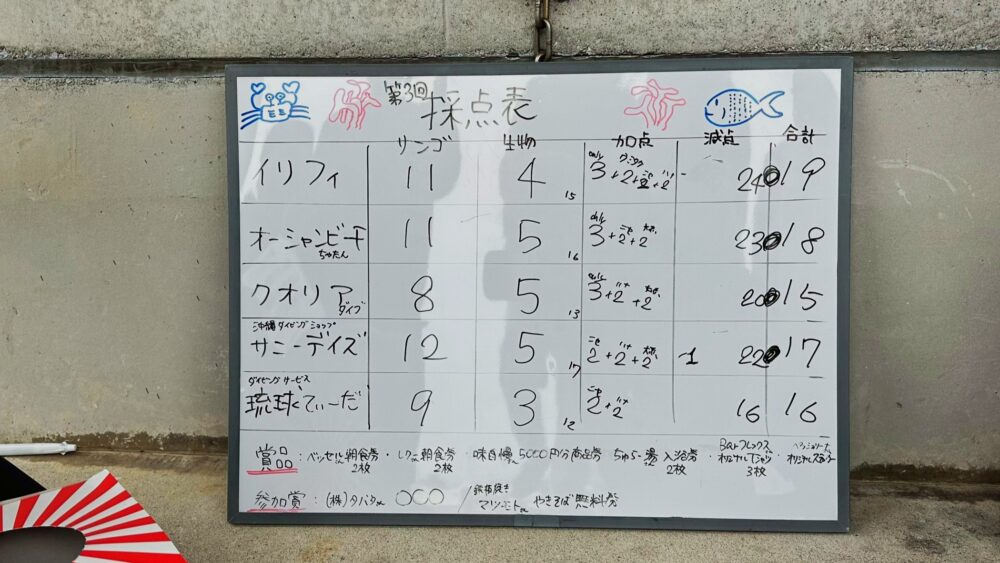 第3回 採点表
サンゴ 生物 加点 減点 合計
イリフィ 11 4 15 3+2+2+2 24 19
オーシャンビーチ ちゅたん 11 5 16 3+2+2 23 18
クオリア ダイブ 8 5 13 3+2+2 20 15
沖縄ダイビングショップ
サニーデイズ 12 5 17 2+2+2 -1 22 17
ダイビングサービス
琉球てぃーだ 9 3 12 2+2 16 16
賞品: ベッセル 朝食券 2枚 ・ 朝食券 2枚 ・ 味自慢 5000円分商品券 ちゅらー湯 入浴券 2枚 ・ オリジナルTシャツ 3枚
参加賞: (株)タバタ 〇〇〇 / 鉄板焼き やきそば無料券